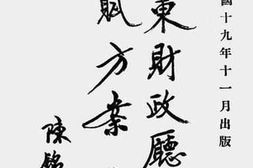 國十九年十一月出版
東財政廳
賦方案
陳銘